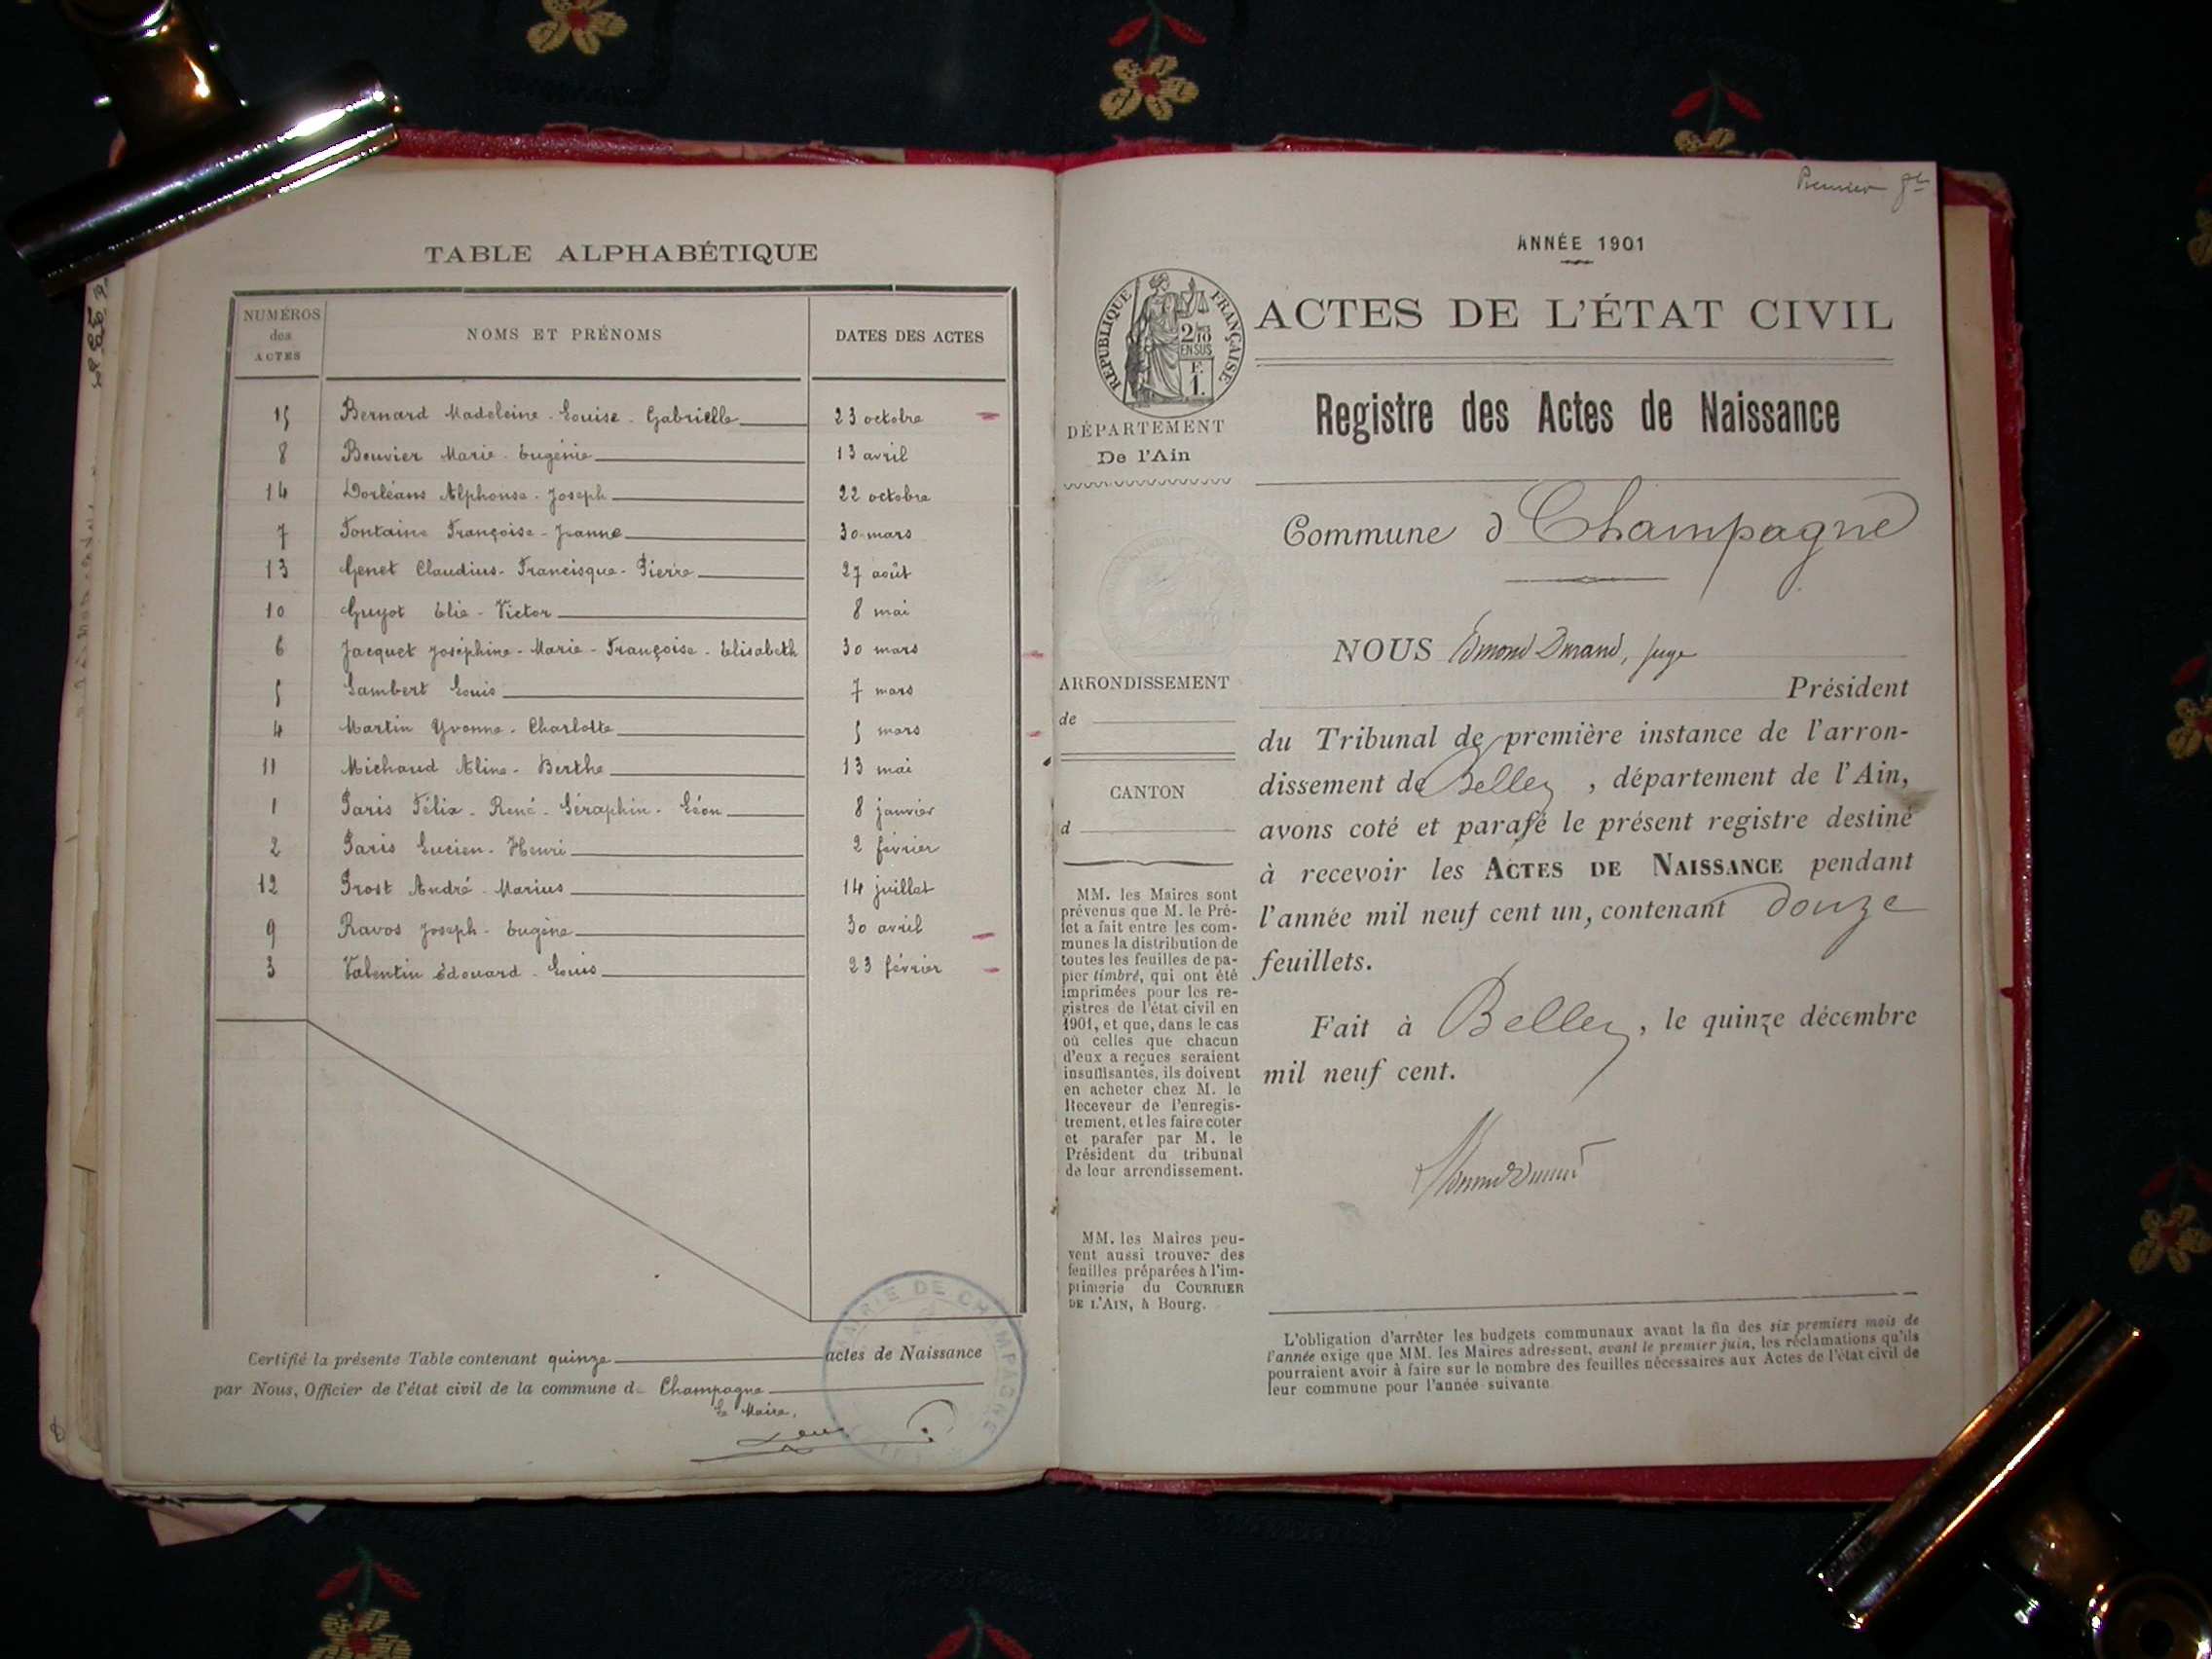 TABLE ALPHABÉTIQUE
NUMÉROS des ACTES NOMS ET PRÉNOMS DATES DES ACTES
15 Bernard Madeleine - Louise - Gabrielle 23 octobre
8 Bouvier Marie - Eugénie 13 avril
14 Dorléans Alphonse - Joseph 22 octobre
7 Fontaine Françoise - Jeanne 30 mars
13 Genet Claudius - Francisque - Pierre 27 août
10 Guyot Elie - Victor 8 mai
6 Jacquet Joséphine - Marie - Françoise - Elisabeth 30 mars
5 Lambert Louis 7 mars
4 Martin Yvonne - Charlotte 5 mars
11 Michaud Aline - Berthe 13 mai
1 Paris Félix - René - Séraphin - Léon 8 janvier
2 Paris Lucien - Henri 2 février
12 Prost André - Marius 14 juillet
9 Ravos Joseph - Eugène 30 avril
3 Valentin Edouard - Louis 23 février
Certifié la présente Table contenant quinze actes de Naissance
par Nous, Officier de l'état civil de la commune d. Champagne
Le Maire,
MAIRIE DE CHAMPAGNE
Premier
ANNÉE 1901
RÉPUBLIQUE FRANÇAISE
2/10 EN SUS
F. 1.
ACTES DE L'ÉTAT CIVIL
DÉPARTEMENT
De l'Ain
Registre des Actes de Naissance
Commune d Champagne
NOUS Edmond Durand, juge
Président
du Tribunal de première instance de l'arron-
dissement de Belley, département de l'Ain,
avons coté et parafé le présent registre destiné
à recevoir les ACTES DE NAISSANCE pendant
l'année mil neuf cent un, contenant douze
feuillets.
Fait à Belley, le quinze décembre
mil neuf cent.
ARRONDISSEMENT
de
CANTON
d
MM. les Maires sont
prévenus que M. le Pré-
fet a fait entre les com-
munes la distribution de
toutes les feuilles de pa-
pier timbré, qui ont été
imprimées pour les re-
gistres de l'état civil en
1901, et que, dans le cas
où celles que chacun
d'eux a reçues seraient
insuffisantes, ils doivent
en acheter chez M. le
Receveur de l'enregis-
trement, et les faire coter
et parafer par M. le
Président du tribunal
de leur arrondissement.
MM. les Maires peu-
vent aussi trouver des
feuilles préparées à l'im-
primerie du COURRIER
DE L'AIN, à Bourg.
L'obligation d'arrêter les budgets communaux avant la fin des six premiers mois de
l'année exige que MM. les Maires adressent, avant le premier juin, les réclamations qu'ils
pourraient avoir à faire sur le nombre des feuilles nécessaires aux Actes de l'état civil de
leur commune pour l'année suivante